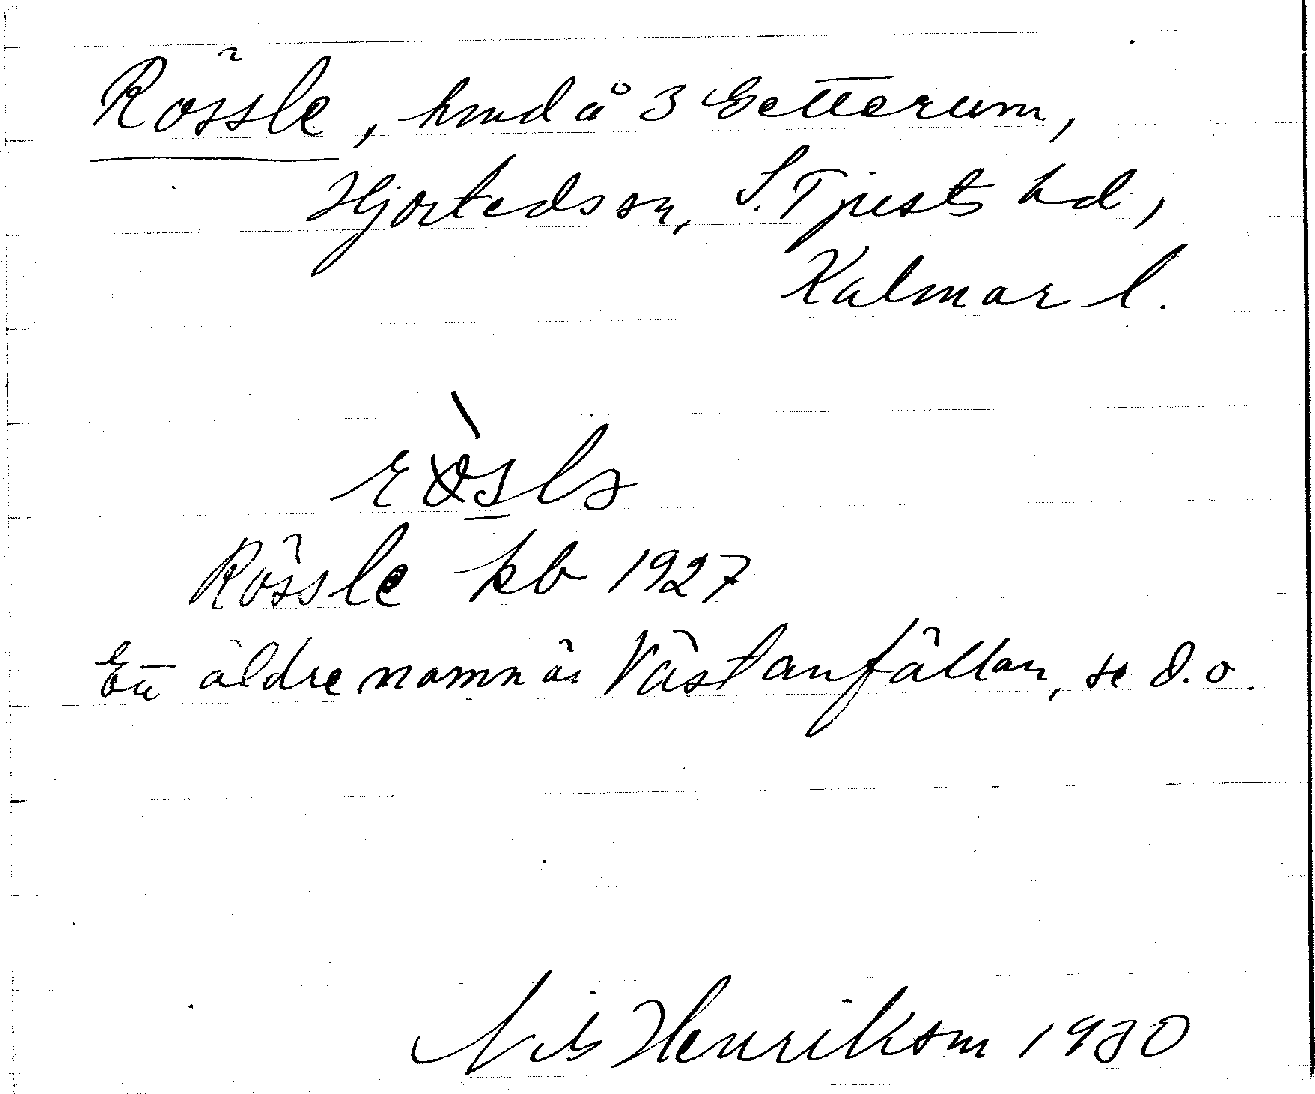 Rössle, hmd å 3 Getterum,
Hjorteds sn, S. Tjusts hd,
Kalmar l.
Rössle kb 1927
Ett äldre namn är Västanfällan, se d.o.
Nils Henrikson 1930